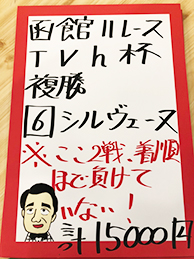 函館11レース
TVh杯
複勝
6 シルヴェーヌ
※ここ2戦、着順
ほど負けて
いない!
計15000円